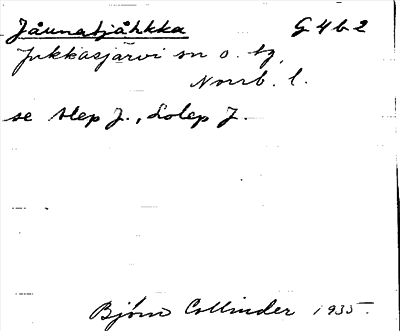 Jåunatjåhkka G 4 b 2
Jukkasjärvi sn o. tg,
Norrb. l.
se Alep J., Lolep J.
Björn Collinder 1935.